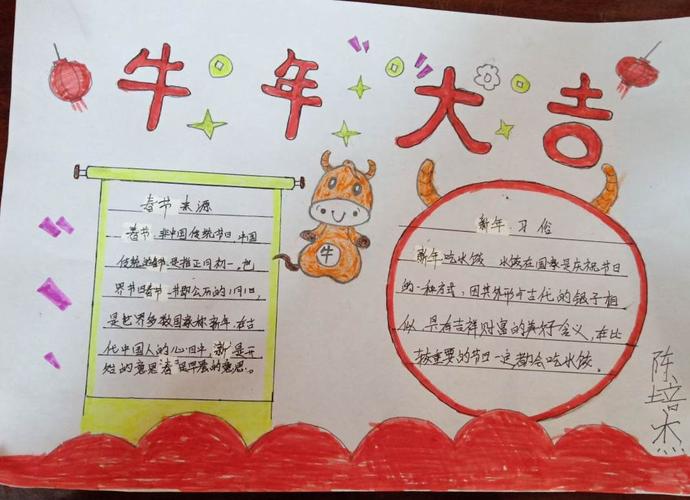 牛年大吉
春节来源
春节,非中国传统节日,中国
传统春节是指正月初一,
界节日春节一节即公历的1月1日,
是世界多数国家称新年,在古
代中国人的心旧中,新是开
姓的意思春是早晨的意思。
牛
新年习俗
新年吃水饺 水饺在国家是庆祝节日
的一种方式,因其外形与古代的银子相
似,具有吉祥财富的美好含义,在比
较重要的节日一定都会吃水饺.
陈培杰